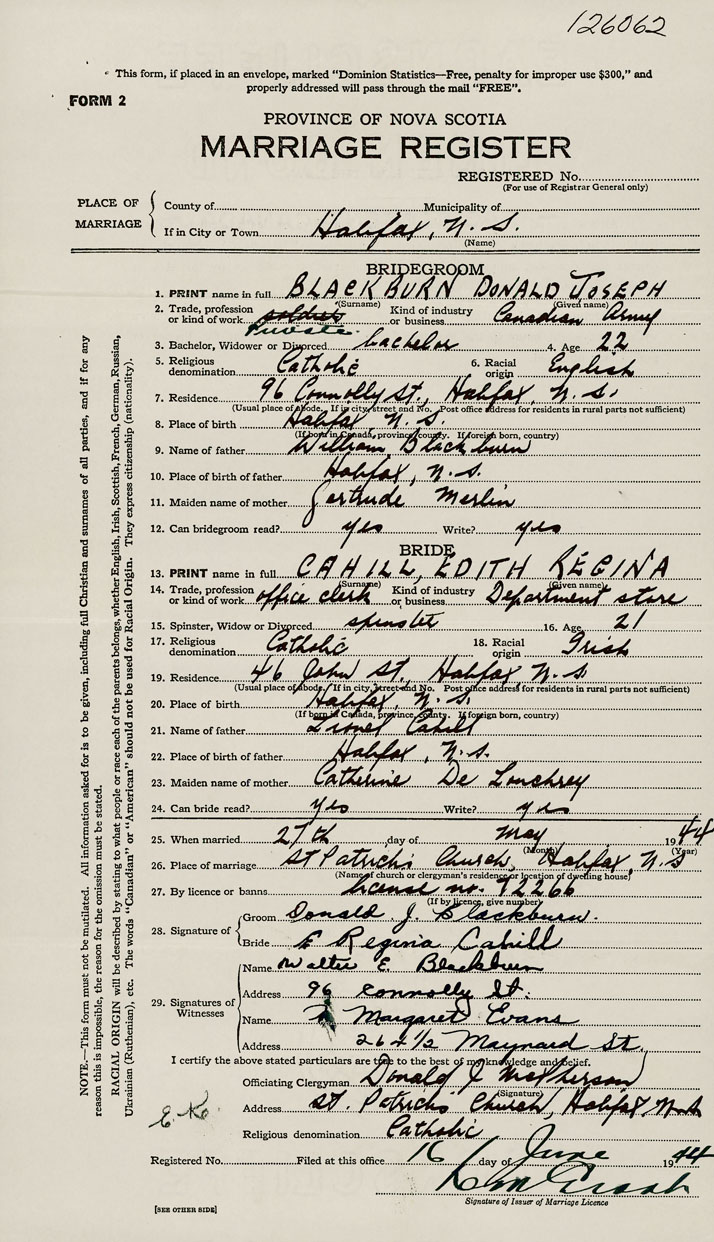 126062
This form, if placed in an envelope, marked "Dominion Statistics—Free, penalty for improper use $300," and
properly addressed will pass through the mail "FREE".
FORM 2
PROVINCE OF NOVA SCOTIA
MARRIAGE REGISTER
REGISTERED No.
(For use of Registrar General only)
PLACE OF MARRIAGE
County of Municipality of
If in City or Town Halifax, N. S.
(Name)
BRIDEGROOM
1. PRINT name in full BLACKBURN DONALD JOSEPH
(Surname) (Given name)
2. Trade, profession or kind of work soldier Private Kind of industry or business Canadian Army
3. Bachelor, Widower or Divorced bachelor 4. Age 22
5. Religious denomination Catholic 6. Racial origin English
7. Residence 96 Connolly St., Halifax, N. S.
(Usual place of abode. If in city, street and No. Post office address for residents in rural parts not sufficient)
8. Place of birth Halifax, N. S.
(If born in Canada, province, county. If foreign born, country)
9. Name of father William Blackburn
10. Place of birth of father Halifax, N. S.
11. Maiden name of mother Gertrude Merlin
12. Can bridegroom read? yes Write? yes
BRIDE
13. PRINT name in full CAHILL, EDITH REGINA
(Surname) (Given name)
14. Trade, profession or kind of work office clerk Kind of industry or business Department store
15. Spinster, Widow or Divorced spinster 16. Age 21
17. Religious denomination Catholic 18. Racial origin Irish
19. Residence 46 John St., Halifax N. S.
(Usual place of abode. If in city, street and No. Post office address for residents in rural parts not sufficient)
20. Place of birth Halifax, N. S.
(If born in Canada, province, county. If foreign born, country)
21. Name of father Lionel Cahill
22. Place of birth of father Halifax, N. S.
23. Maiden name of mother Catherine De
24. Can bride read? yes Write? yes
25. When married 27th day of May 1944
(Month) (Year)
26. Place of marriage St Patrick's Church, Halifax, N. S
(Name of church or clergyman's residence or location of dwelling house)
27. By licence or banns license no. 92266
(If by licence, give number)
28. Signature of
Groom Donald J. Blackburn.
Bride E Regina Cahill
29. Signatures of Witnesses
Name Walter E. Blackburn
Address 96 Connolly St.
Name Margaret Evans
Address 264 1/2 Maynard St.
I certify the above stated particulars are true to the best of my knowledge and belief.
Officiating Clergyman Donald J. McPherson
(Signature)
Address St. Patrick's Church, Halifax N.S
Religious denomination Catholic
Registered No. Filed at this office 16 day of June 1944
Signature of Issuer of Marriage Licence
[SEE OTHER SIDE]
NOTE.—This form must not be mutilated. All information asked for is to be given, including full Christian and surnames of all parties, and if for any
reason this is impossible, the reason for the omission must be stated.
RACIAL ORIGIN will be described by stating to what people or race each of the parents belongs, whether English, Irish, Scottish, French, German, Russian,
Ukrainian (Ruthenian), etc. The words "Canadian" or "American" should not be used for Racial Origin. They express citizenship (nationality).